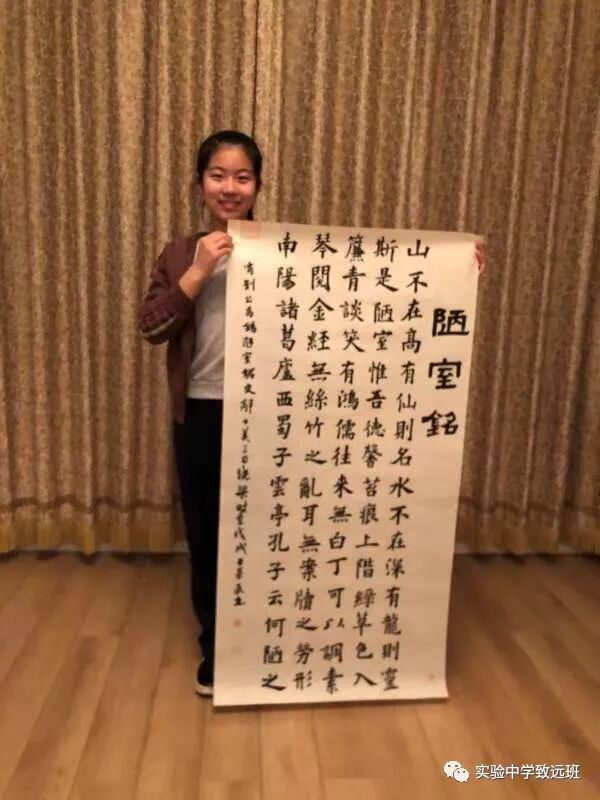 陋室銘
山不在高有仙則名水不在深有龍則靈
斯是陋室惟吾德馨苔痕上階綠草色入
簾青談笑有鴻儒往来無白丁可以調素
琴閱金経無絲竹之亂耳無案牘之勞形
南陽諸葛廬西蜀子雲亭孔子云何陋之
有劉公禹錫陋室銘文辭戊戌
实验中学致远班